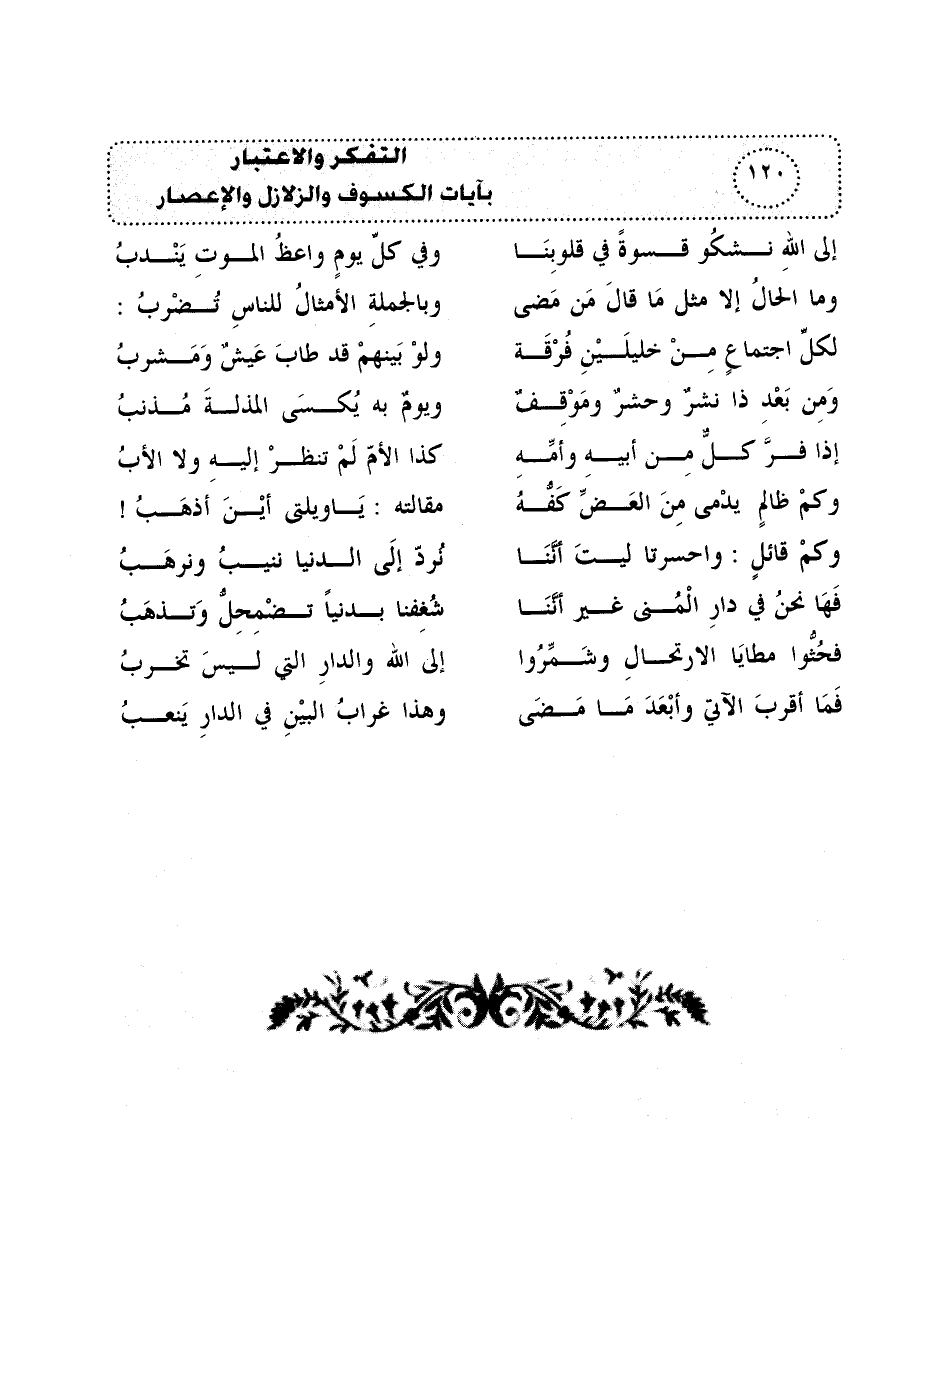 التفكر والاعتبار
بآيات الكسوف والزلازل والإعصار
١٢٠
إلى الله نشكُو قسوةً في قلوبنَا وفي كلّ يومٍ واعظُ الموتِ يَنْدبُ
وما الحالُ إلا مثل مَا قالَ مَن مَضى وبالجملةِ الأمثالُ للناسِ تُضْربُ :
لكلّ اجتماعٍ مِنْ خليلَيْنِ فُرْقَة ولوْ بَينهمْ قد طابَ عَيشٌ وَمَشربُ
وَمن بَعْدِ ذا نشرٌ وحشرٌ ومَوْقِفٌ ويومٌ به يُكسَى المذلةَ مُذنبُ
إذا فرَّ كلٌّ مِن أبيه وأمِّه كذا الأمّ لَمْ تنظرْ إليه ولا الأبُ
وكمْ ظالمٍ يدْمى مِنَ العَضِّ كَفُّهُ مقالته : يَاويلتى أيْنَ أذهَبُ !
وكمْ قائلٍ : واحسرتا ليتَ أنَّنَا نُردّ إلَى الدنيا ننيبُ ونرهَبُ
فَهَا نحنُ في دارِ الْمُنى غير أنَّنَا شُغفنا بدنياً تضْمحلُّ وَتذهَبُ
فحُثُّوا مطايَا الارتحالِ وشَمِّرُوا إلى الله والدارِ التي ليسَ تخربُ
فَمَا أقربَ الآتيَ وأبْعَدَ مَا مَضَى وهذا غرابُ البيْنِ في الدارِ يَنعبُ